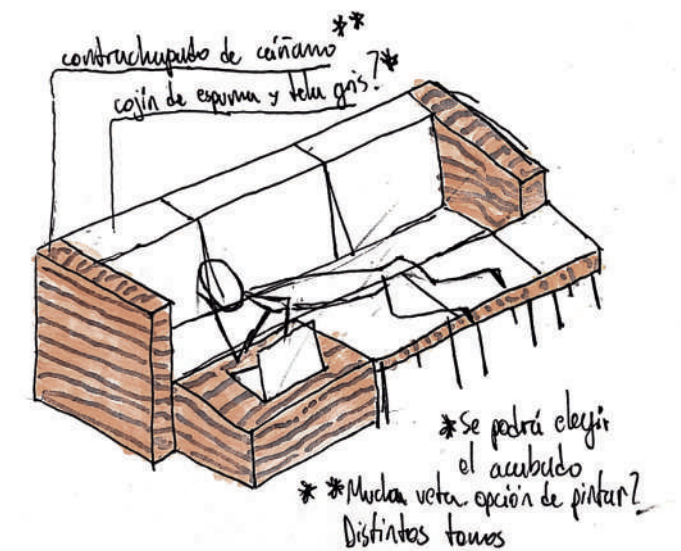 contrachapado de **
cojín de espuma y tela gris?*
*Se podrá elegir
el acabado
**Mucha veta. opción de pintar?
Distintos tonos